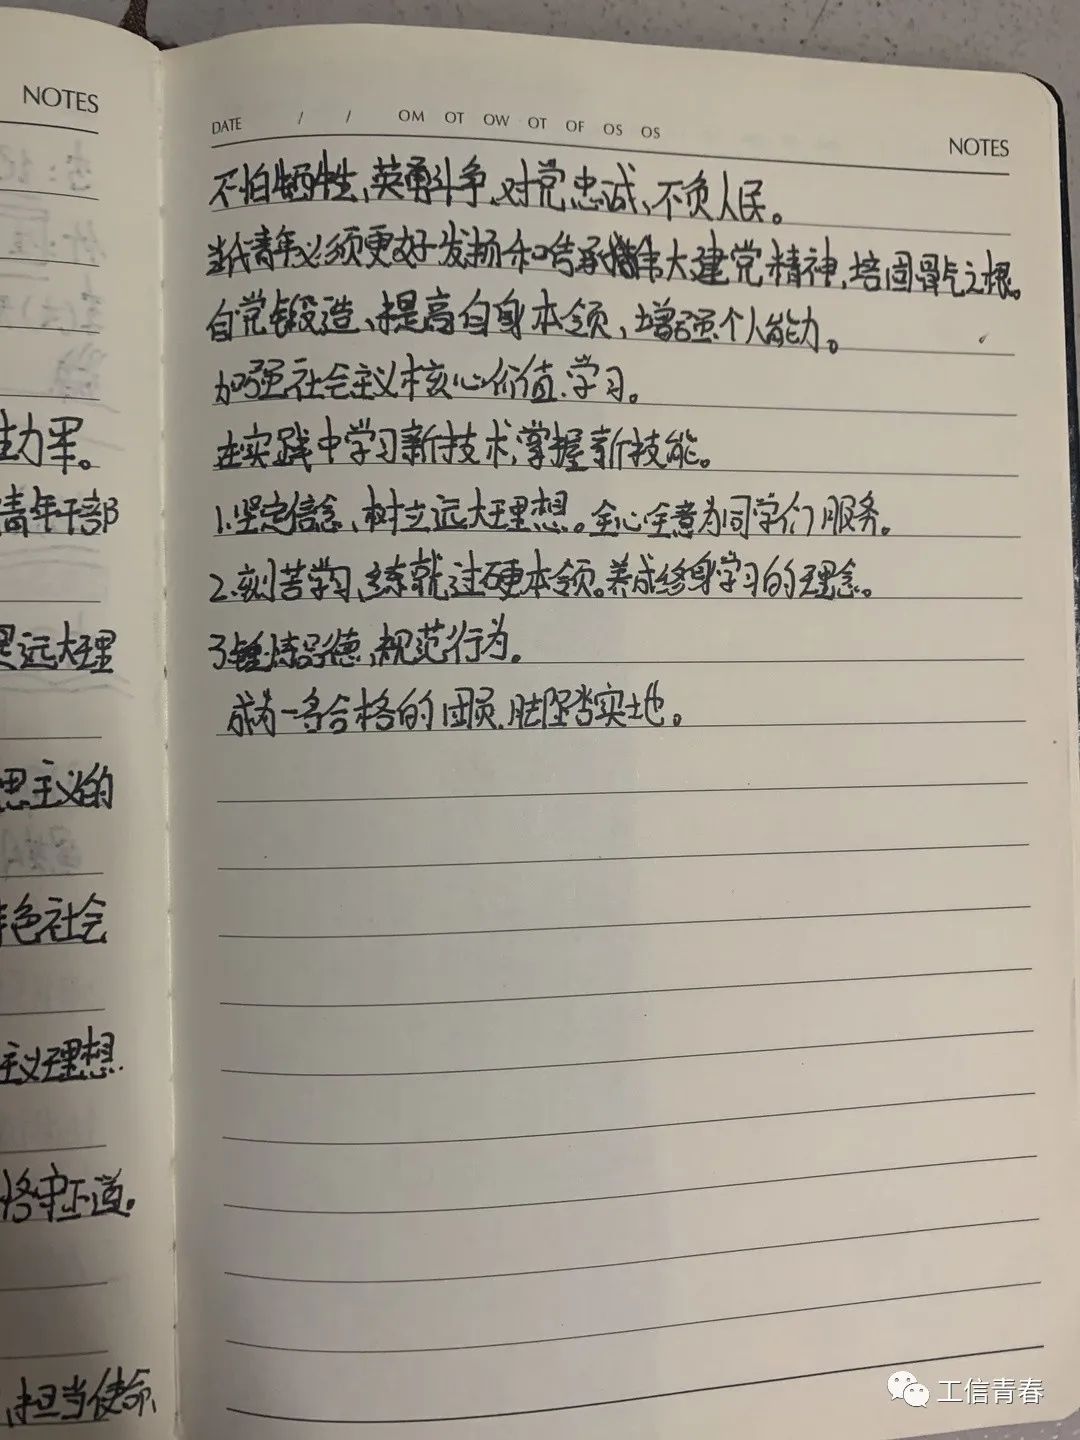 NOTES
生力军。
青年干部
思远大理
思主义的
特色社会
主义理想.
恪守正道。
担当使命、
DATE / / OM OT OW OT OF OS OS
NOTES
不怕牺牲、英勇斗争、对党忠诚、不负人民。
当代青年必须更好发扬和传承伟大建党精神,培固骨气之根。
自觉锻造、提高自身本领、增强个人能力。
加强社会主义核心价值学习。
在实践中学习新技术,掌握新技能。
1.坚定信念、树立远大理想。全心全意为同学们服务。
2.刻苦学习、练就过硬本领。养成终身学习的理念。
3锤炼品德、规范行为。
成为一名合格的团员,脚踏实地。
工信青春